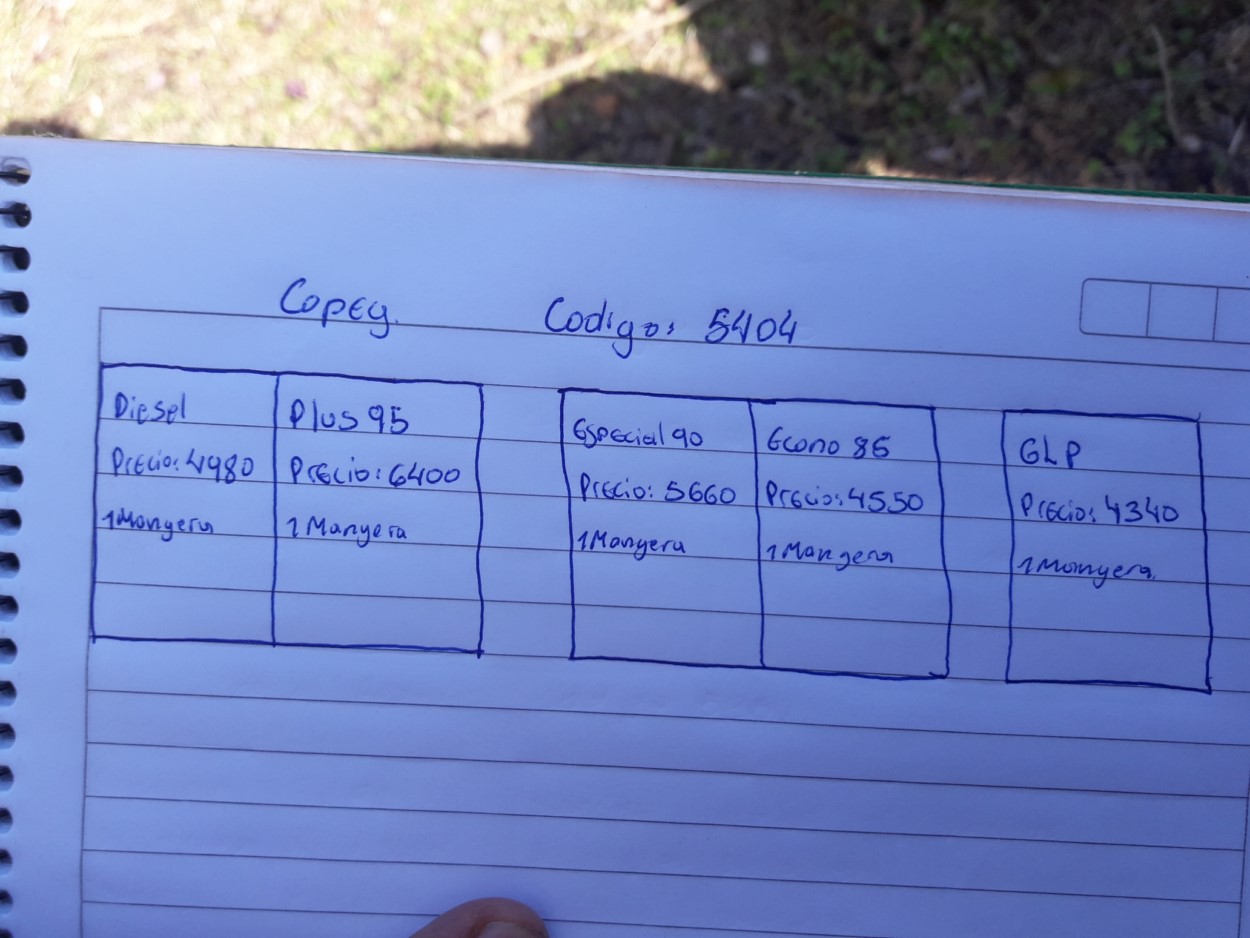 Copeg. Codigo: 5404
Diesel Plus 95 Especial 90 Econo 85 GLP
Precio: 4980 Precio: 6400 Precio: 5660 Precio: 4550 Precio: 4340
1 Mangera 1 Mangera 1 Mangera 1 Mangera 1 Mangera.